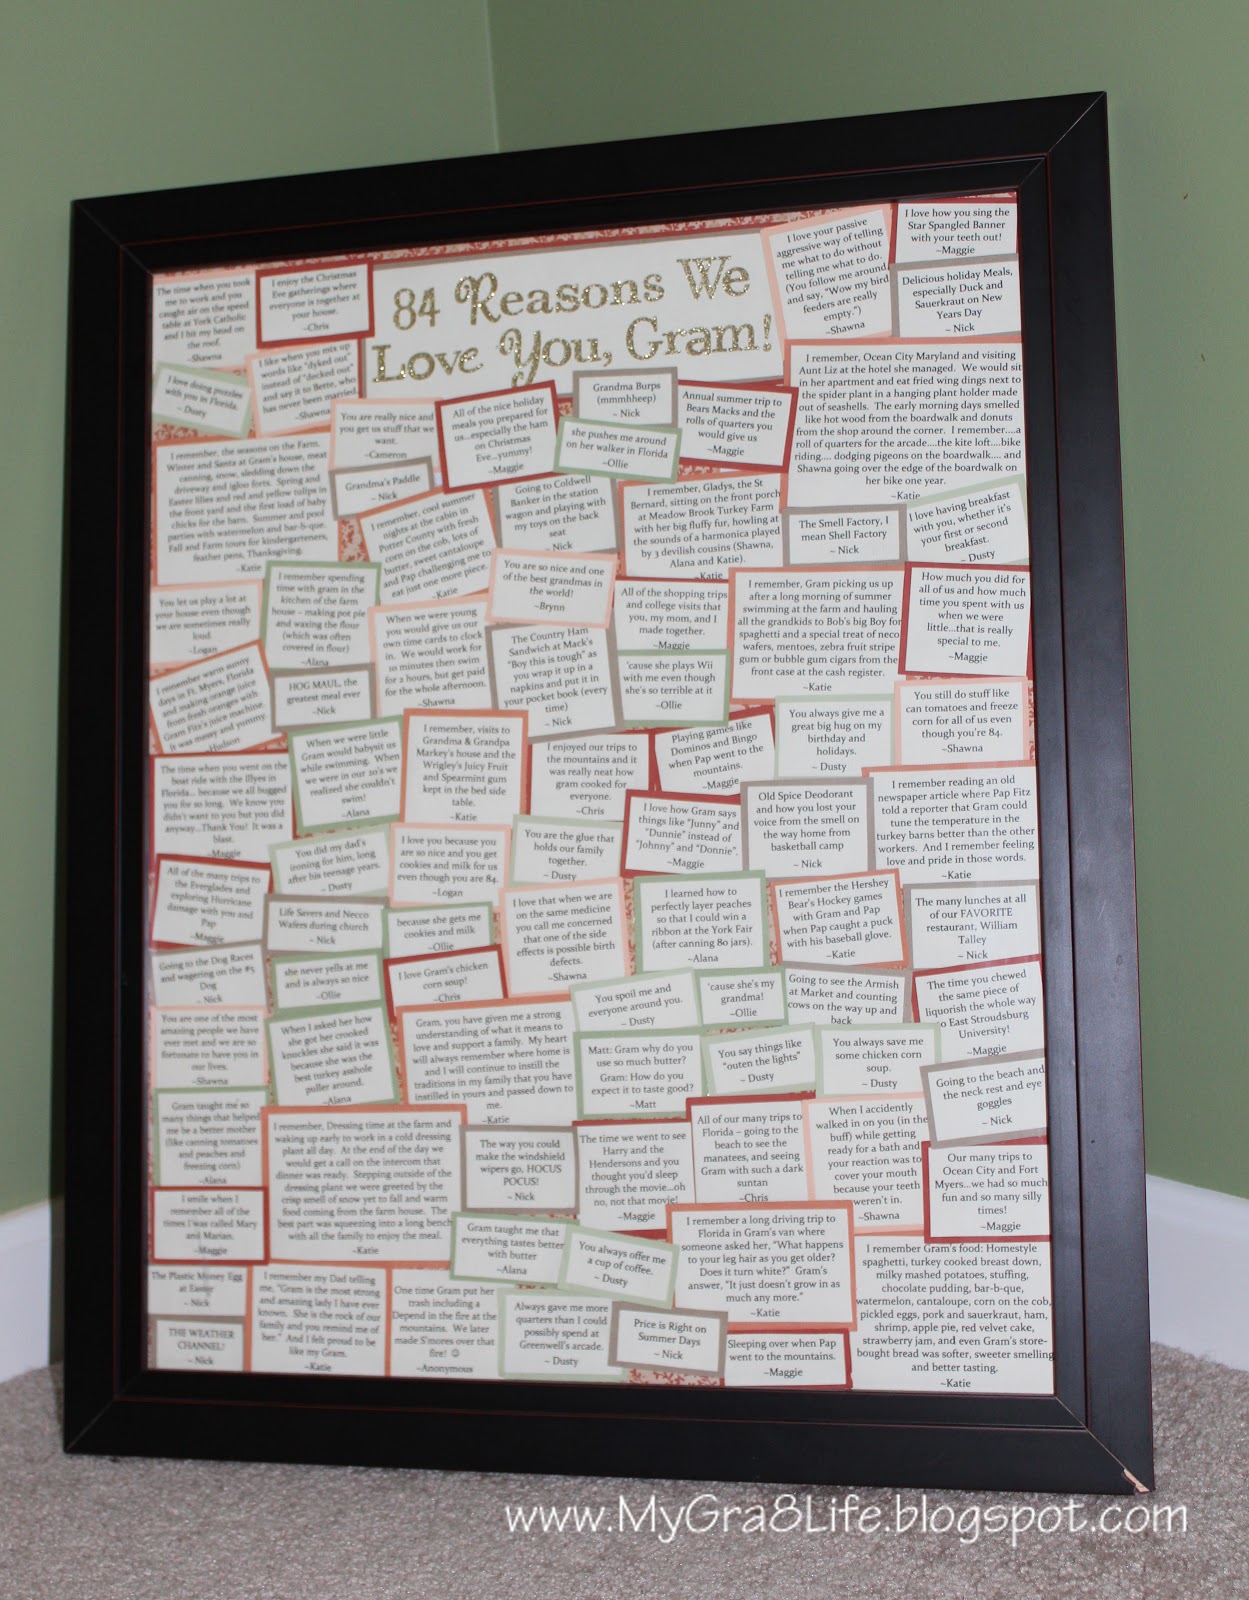 84 Reasons We
Love You, Gram!
The time when you took
me to work and you
caught air on the speed
table at York Catholic
and I hit my head on
the roof.
~Shawna
I enjoy the Christmas
Eve gatherings where
everyone is together at
your house.
~Chris
I love your passive
aggressive way of telling
me what to do without
telling me what to do.
(You follow me around
and say, "Wow my bird
feeders are really
empty.")
~Shawna
I love how you sing the
Star Spangled Banner
with your teeth out!
~Maggie
Delicious holiday Meals,
especially Duck and
Sauerkraut on New
Years Day
~ Nick
I love doing puzzles
with you in Florida.
~ Dusty
I like when you mix up
words like "dyked out"
instead of "decked out"
and say it to Bette, who
has never been married.
~Shawna
You are really nice and
you get us stuff that we
want.
~Cameron
All of the nice holiday
meals you prepared for
us...especially the ham
on Christmas
Eve...yummy!
~Maggie
Grandma Burps
(mmmhheep)
~ Nick
she pushes me around
on her walker in Florida
~Ollie
Annual summer trip to
Bears Macks and the
rolls of quarters you
would give us
~Maggie
I remember, Ocean City Maryland and visiting
Aunt Liz at the hotel she managed. We would sit
in her apartment and eat fried wing dings next to
the spider plant in a hanging plant holder made
out of seashells. The early morning days smelled
like hot wood from the boardwalk and donuts
from the shop around the corner. I remember....a
roll of quarters for the arcade....the kite loft....bike
riding.... dodging pigeons on the boardwalk.... and
Shawna going over the edge of the boardwalk on
her bike one year.
~Katie
I remember, the seasons on the Farm.
Winter and Santa at Gram's house, meat
canning, snow, sledding down the
driveway and igloo forts. Spring and
Easter lilies and red and yellow tulips in
the front yard and the first load of baby
chicks for the barn. Summer and pool
parties with watermelon and bar-b-que.
Fall and Farm tours for kindergarteners,
feather pens, Thanksgiving.
~Katie
Grandma's Paddle
~ Nick
I remember, cool summer
nights at the cabin in
Potter County with fresh
corn on the cob, lots of
butter, sweet cantaloupe
and Pap challenging me to
eat just one more piece.
~Katie
Going to Coldwell
Banker in the station
wagon and playing with
my toys on the back
seat
~ Nick
I remember, Gladys, the St
Bernard, sitting on the front porch
at Meadow Brook Turkey Farm
with her big fluffy fur, howling at
the sounds of a harmonica played
by 3 devilish cousins (Shawna,
Alana and Katie).
~Katie
The Smell Factory, I
mean Shell Factory
~ Nick
I love having breakfast
with you, whether it's
your first or second
breakfast.
~ Dusty
You let us play a lot at
your house even though
we are sometimes really
loud.
~Logan
I remember spending
time with gram in the
kitchen of the farm
house – making pot pie
and waxing the flour
(which was often
covered in flour)
~Alana
When we were young
you would give us our
own time cards to clock
in. We would work for
10 minutes then swim
for 2 hours, but get paid
for the whole afternoon.
~Shawna
You are so nice and one
of the best grandmas in
the world!
~Brynn
All of the shopping trips
and college visits that
you, my mom, and I
made together.
~Maggie
I remember, Gram picking us up
after a long morning of summer
swimming at the farm and hauling
all the grandkids to Bob's big Boy for
spaghetti and a special treat of neco
wafers, mentoes, zebra fruit stripe
gum or bubble gum cigars from the
front case at the cash register.
~Katie
How much you did for
all of us and how much
time you spent with us
when we were
little...that is really
special to me.
~Maggie
I remember warm sunny
days in Ft. Myers, Florida
and making orange juice
from fresh oranges with
Gram Fitz's juice machine.
It was messy and yummy.
~Hudson
HOG MAUL, the
greatest meal ever
~Nick
The Country Ham
Sandwich at Mack's
"Boy this is tough" as
you wrap it up in a
napkins and put it in
your pocket book (every
time)
~ Nick
'cause she plays Wii
with me even though
she's so terrible at it
~Ollie
You still do stuff like
can tomatoes and freeze
corn for all of us even
though you're 84.
~Shawna
The time when you went on the
boat ride with the Illyes in
Florida... because we all bugged
you for so long. We know you
didn't want to but you did
anyway...Thank You! It was a
blast.
~Maggie
When we were little
Gram would babysit us
while swimming. When
we were in our 20's we
realized she couldn't
swim!
~Alana
I remember, visits to
Grandma & Grandpa
Markey's house and the
Wrigley's Juicy Fruit
and Spearmint gum
kept in the bed side
table.
~Katie
I enjoyed our trips to
the mountains and it
was really neat how
gram cooked for
everyone.
~Chris
Playing games like
Dominos and Bingo
when Pap went to the
mountains.
~Maggie
You always give me a
great big hug on my
birthday and
holidays.
~ Dusty
I love how Gram says
things like "Junny" and
"Dunnie" instead of
"Johnny" and "Donnie".
~Maggie
Old Spice Deodorant
and how you lost your
voice from the smell on
the way home from
basketball camp
~ Nick
I remember reading an old
newspaper article where Pap Fitz
told a reporter that Gram could
tune the temperature in the
turkey barns better than the other
workers. And I remember feeling
love and pride in those words.
~Katie
All of the many trips to
the Everglades and
exploring Hurricane
damage with you and
Pap
~Maggie
You did my dad's
ironing for him, long
after his teenage years.
~ Dusty
I love you because you
are so nice and you get
cookies and milk for us
even though you are 84.
~Logan
You are the glue that
holds our family
together.
~ Dusty
Life Savers and Necco
Wafers during church
~ Nick
because she gets me
cookies and milk
~Ollie
I love that when we are
on the same medicine
you call me concerned
that one of the side
effects is possible birth
defects.
~Shawna
I learned how to
perfectly layer peaches
so that I could win a
ribbon at the York Fair
(after canning 80 jars).
~Alana
I remember the Hershey
Bear's Hockey games
with Gram and Pap
when Pap caught a puck
with his baseball glove.
~Katie
The many lunches at all
of our FAVORITE
restaurant, William
Talley
~ Nick
Going to the Dog Races
and wagering on the #5
Dog
~ Nick
she never yells at me
and is always so nice
~Ollie
I love Gram's chicken
corn soup!
~Chris
You spoil me and
everyone around you.
~ Dusty
'cause she's my
grandma!
~Ollie
Going to see the Armish
at Market and counting
cows on the way up and
back
The time you chewed
the same piece of
liquorish the whole way
to East Stroudsburg
University!
~Maggie
You are one of the most
amazing people we have
ever met and we are so
fortunate to have you in
our lives.
~Shawna
When I asked her how
she got her crooked
knuckles she said it was
because she was the
best turkey asshole
puller around.
~Alana
Gram, you have given me a strong
understanding of what it means to
love and support a family. My heart
will always remember where home is
and I will continue to instill the
traditions in my family that you have
instilled in yours and passed down to
me.
~Katie
Matt: Gram why do you
use so much butter?
Gram: How do you
expect it to taste good?
~Matt
You say things like
"outen the lights"
~ Dusty
You always save me
some chicken corn
soup.
~ Dusty
Going to the beach and
the neck rest and eye
goggles
~ Nick
Gram taught me so
many things that helped
me be a better mother
(like canning tomatoes
and peaches and
freezing corn)
~Alana
I remember, Dressing time at the farm and
waking up early to work in a cold dressing
plant all day. At the end of the day we
would get a call on the intercom that
dinner was ready. Stepping outside of the
dressing plant we were greeted by the
crisp smell of snow yet to fall and warm
food coming from the farm house. The
best part was squeezing into a long bench
with all the family to enjoy the meal.
~Katie
The way you could
make the windshield
wipers go, HOCUS
POCUS!
~ Nick
The time we went to see
Harry and the
Hendersons and you
thought you'd sleep
through the movie...oh
no, not that movie!
~Maggie
All of our many trips to
Florida – going to the
beach to see the
manatees, and seeing
Gram with such a dark
suntan
~Chris
When I accidently
walked in on you (in the
buff) while getting
ready for a bath and
your reaction was to
cover your mouth
because your teeth
weren't in.
~Shawna
Our many trips to
Ocean City and Fort
Myers...we had so much
fun and so many silly
times!
~Maggie
I smile when I
remember all of the
times I was called Mary
and Marian.
~Maggie
Gram taught me that
everything tastes better
with butter
~Alana
You always offer me
a cup of coffee.
~ Dusty
I remember a long driving trip to
Florida in Gram's van where
someone asked her, "What happens
to your leg hair as you get older?
Does it turn white?" Gram's
answer, "It just doesn't grow in as
much any more."
~Katie
I remember Gram's food: Homestyle
spaghetti, turkey cooked breast down,
milky mashed potatoes, stuffing,
chocolate pudding, bar-b-que,
watermelon, cantaloupe, corn on the cob,
pickled eggs, pork and sauerkraut, ham,
shrimp, apple pie, red velvet cake,
strawberry jam, and even Gram's store-
bought bread was softer, sweeter smelling
and better tasting.
~Katie
The Plastic Money Egg
at Easter
~ Nick
THE WEATHER
CHANNEL!
~ Nick
I remember my Dad telling
me, "Gram is the most strong
and amazing lady I have ever
known. She is the rock of our
family and you remind me of
her." And I felt proud to be
like my Gram.
~Katie
One time Gram put her
trash including a
Depend in the fire at the
mountains. We later
made S'mores over that
fire! ☺
~Anonymous
Always gave me more
quarters than I could
possibly spend at
Greenwell's arcade.
~ Dusty
Price is Right on
Summer Days
~ Nick
Sleeping over when Pap
went to the mountains.
~Maggie
www.MyGra8Life.blogspot.com